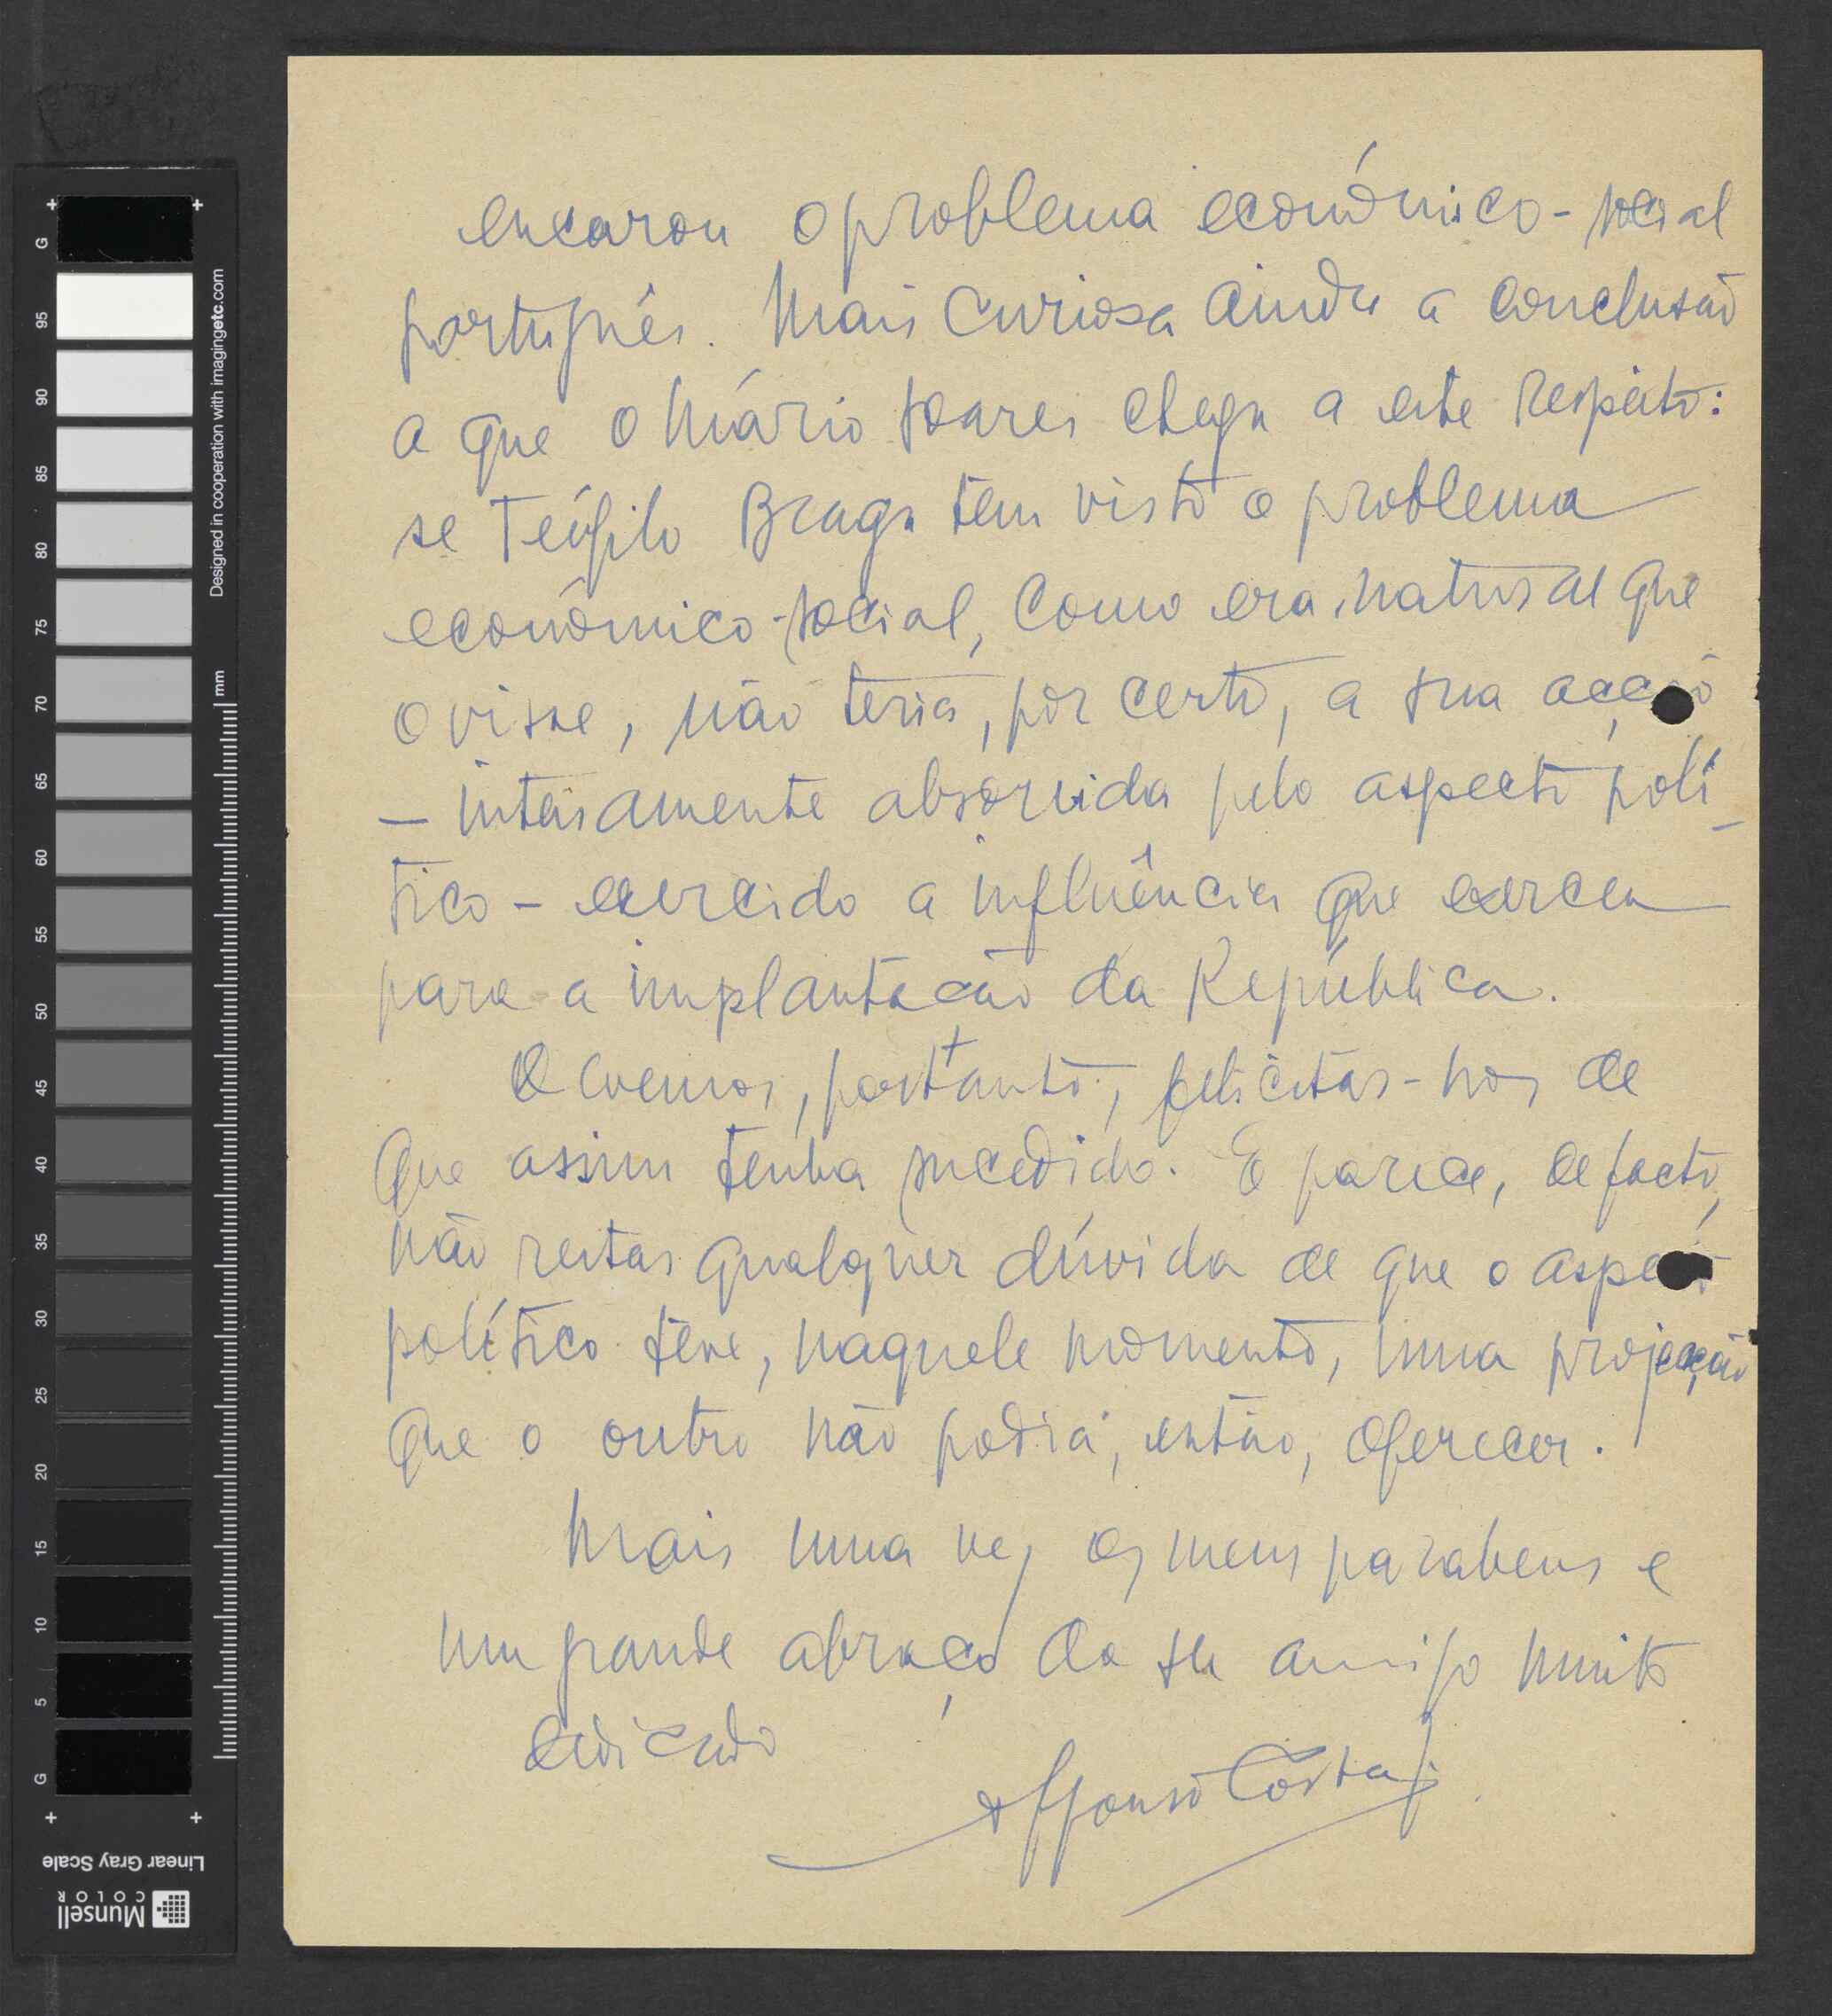 encarou o problema económico-social
português. Mais curiosa ainda a conclusão
a que o Mário Soares chega a este respeito:
se Teófilo Braga tem visto o problema
económico-social, como era natural que
o visse, não teria, por certo, a sua acção
— inteiramente absorvida pelo aspecto polí-
tico – exercido a influência que exerceu
para a implantação da República.
Devemos, portanto, felicitar-nos de
que assim tenha sucedido. E parece, de facto,
não restar qualquer dúvida de que o aspecto
político teve, naquele momento, uma projecção
que o outro não podia, então, oferecer.
Mais uma vez os meus parabens e
um grande abraço do seu amigo muito
dedicado
Affonso Costa
G 95 90 85 80 75 70 65 60 55 50 45 40 35 30 25 20 15 10 5 G
Designed in cooperation with imagingetc.com
mm
Linear Gray Scale
Munsell
COLOR